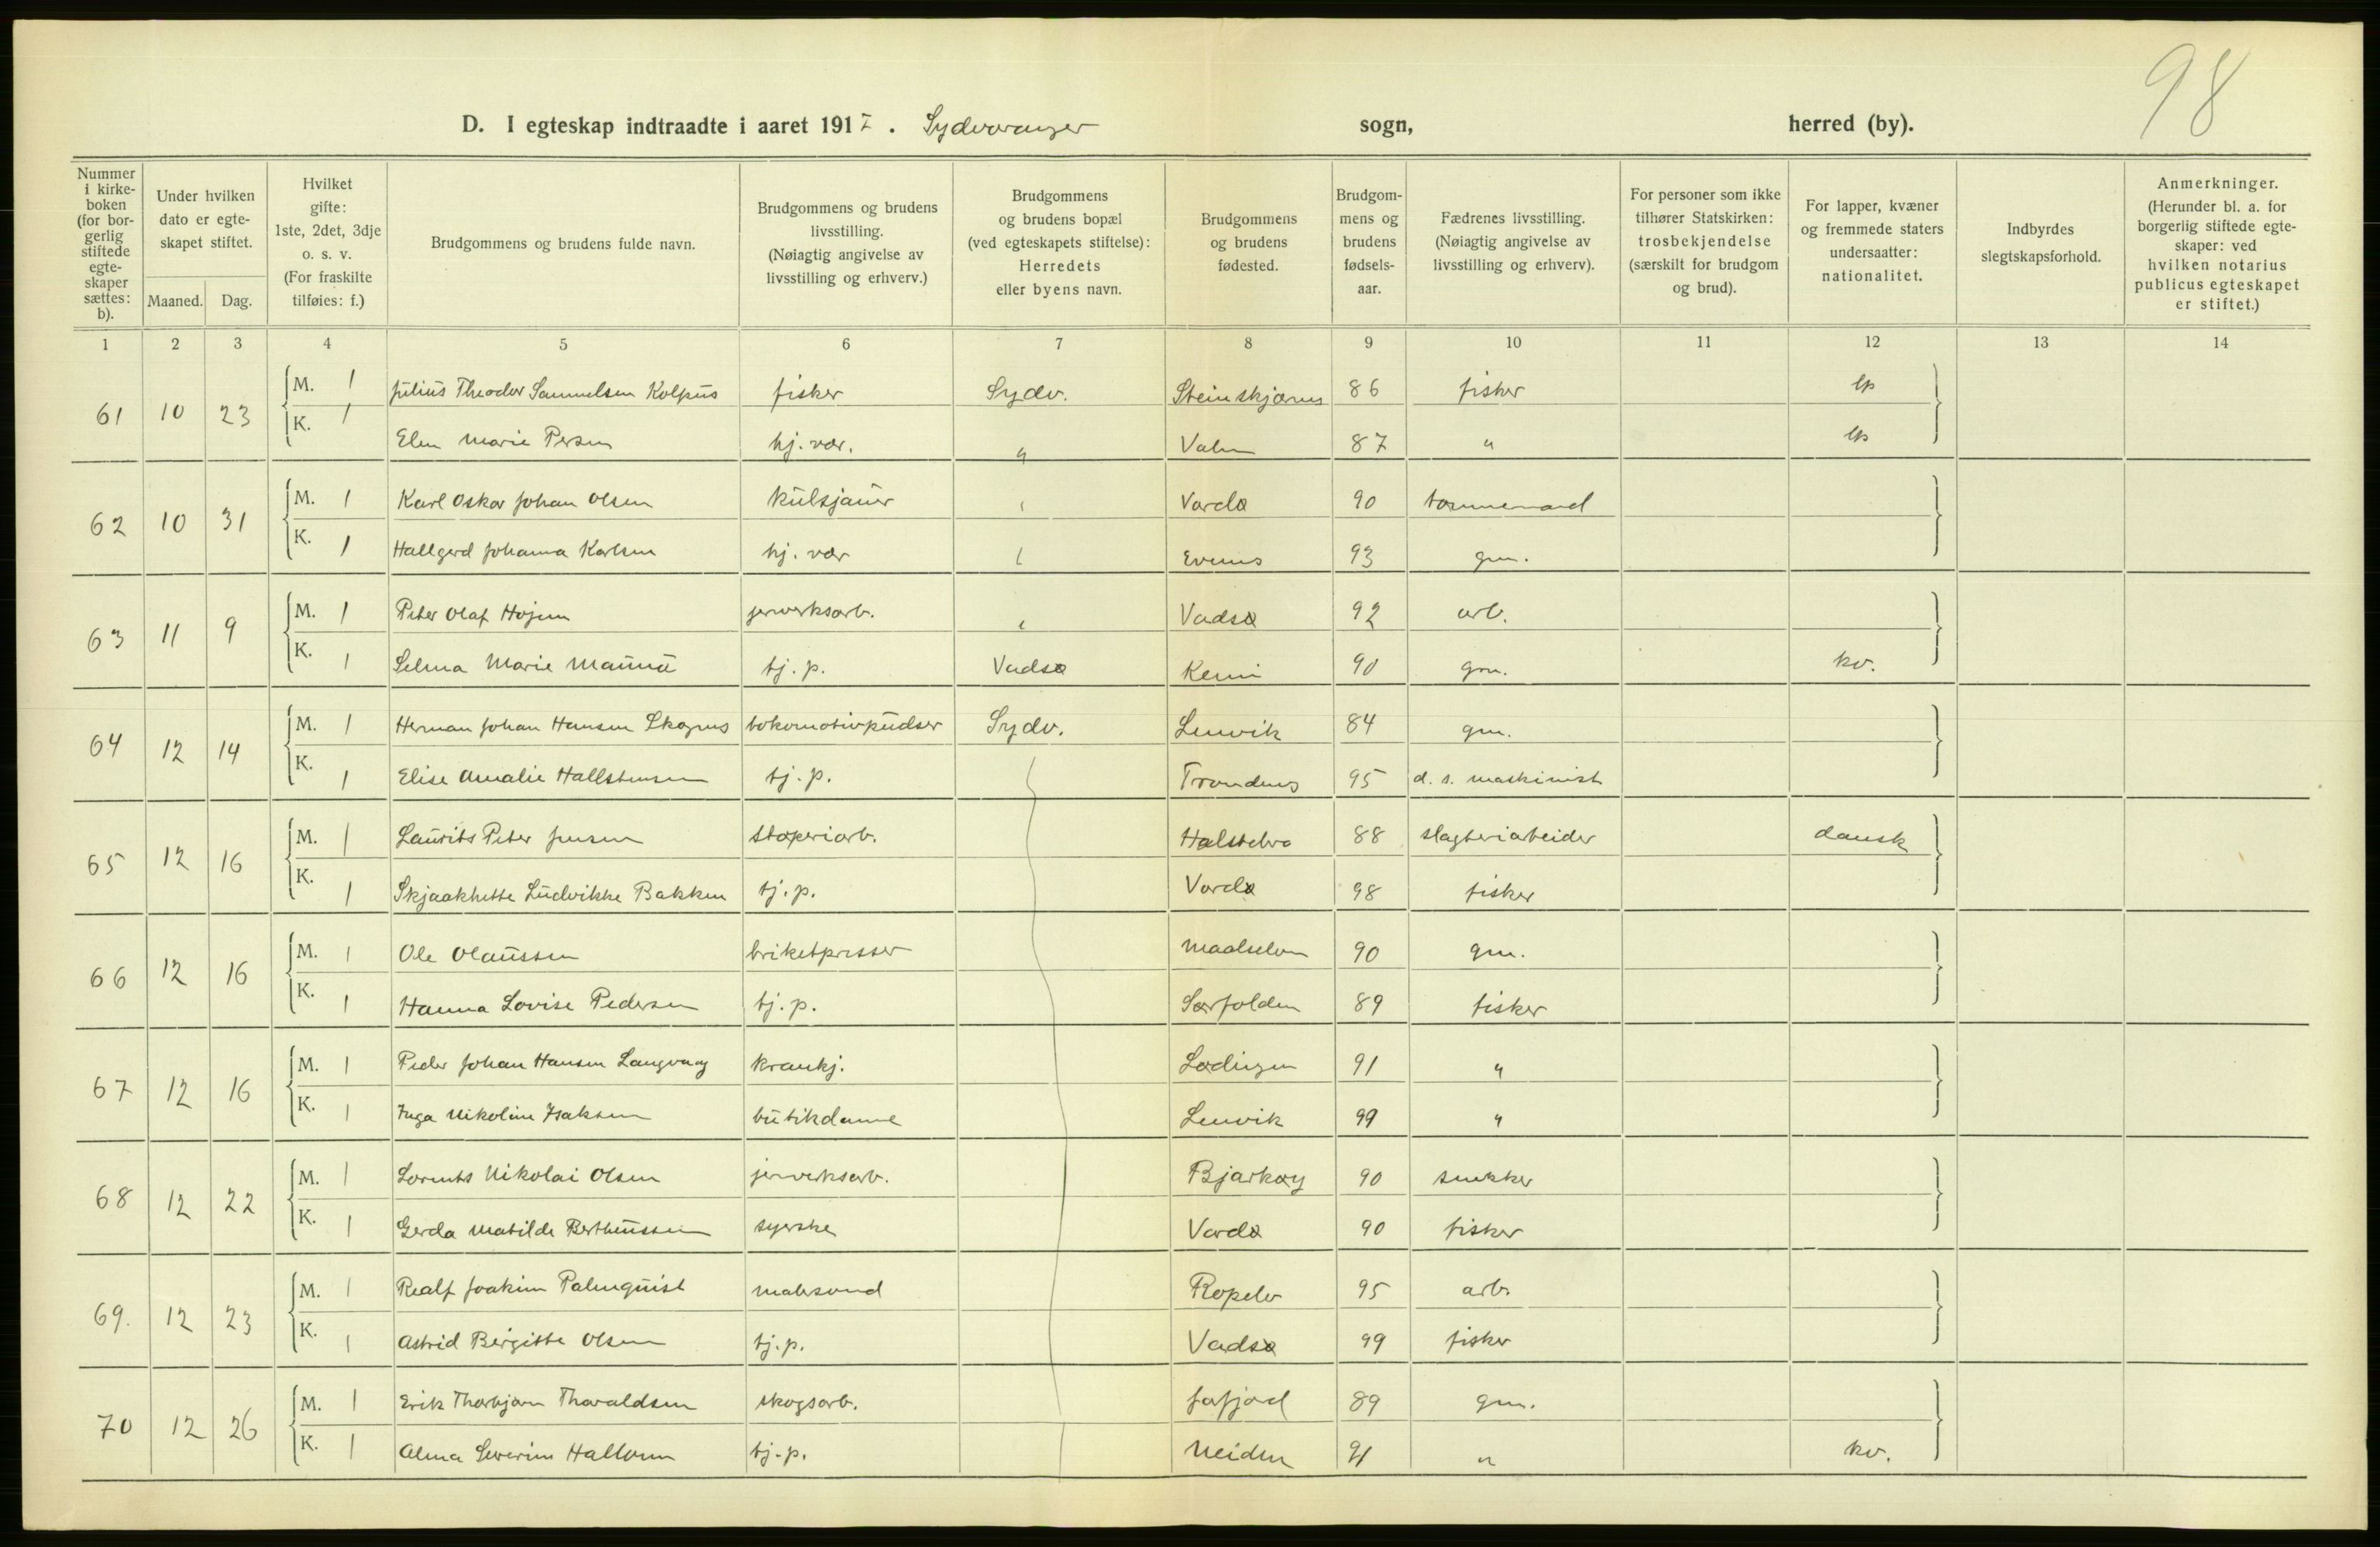 98
D. I egteskap indtraadte i aaret 1917. Sydvaranger sogn, herred (by).
Nummer i kirkeboken (for borgerlig stiftede egteskaper sættes: b).
Under hvilken dato er egteskapet stiftet.
Maaned. Dag.
Hvilket gifte: 1ste, 2det, 3dje o. s. v. (For fraskilte tilføies: f.)
Brudgommens og brudens fulde navn.
Brudgommens og brudens livsstilling. (Nøiagtig angivelse av livsstilling og erhverv.)
Brudgommens og brudens bopæl (ved egteskapets stiftelse): Herredets eller byens navn.
Brudgommens og brudens fødested.
Brudgommens og brudens fødselsaar.
Fædrenes livsstilling. (Nøiagtig angivelse av livsstilling og erhverv).
For personer som ikke tilhører Statskirken: trosbekjendelse (særskilt for brudgom og brud).
For lapper, kvæner og fremmede staters undersaatter: nationalitet.
Indbyrdes slegtskapsforhold.
Anmerkninger. (Herunder bl. a. for borgerlig stiftede egteskaper: ved hvilken notarius publicus egteskapet er stiftet.)
1 2 3 4 5 6 7 8 9 10 11 12 13 14
61 10 23 M. 1 Julius Theodor Samuelsen Kolpus fisker Sydv. Steinskjærnes 86 fisker lp
K. 1 Elen Marie Persen hj. vær. " 87 " lp
62 10 31 M. 1 Karl Oskar Johan Olsen kulsjauer Vardø 90 tømmermand
K. 1 Hallgerd Johanna Karlsen hj. vær Evenes 93 gm.
63 11 9 M. 1 Peter Olaf Hojem jerverksarb. Vadsø 92 arb.
K. 1 Selma Marie Maunu tj. p. Vadsø Kemi 90 gm. kv.
64 12 14 M. 1 Herman Johan Hansen lokomotivpudser Sydv. Lenvik 84 gm.
K. 1 Elise Amalie Hallstensen tj. p. Trondenes 95 d. s. maskinist
65 12 16 M. 1 Laurits Peter Jensen støperiarb. Holstebro 88 slagteriarbeider dansk
K. 1 Ludvikke Bakken tj. p. Vardø 98 fisker
66 12 16 M. 1 Ole Olaussen briketpresser Maalselven 90 gm.
K. 1 Hanna Lovise Pedersen tj. p. Sørfolden 89 fisker
67 12 16 M. 1 Peder Johan Hansen Langvaag krankj. Lødingen 91 "
K. 1 Inga Nikoline Isaksen butikdame Lenvik 99 "
68 12 22 M. 1 Lorents Nikolai Olsen jernverksarb. Bjarkøy 90 snekker
K. 1 Gerda Matilde Bertheussen syerske Vardø 90 fisker
69. 12 23 M. 1 Realf Joakim Palmquist malersvend Ropelv 95 arb.
K. 1 Astrid Bergitte Olsen tj. p. Vadsø 99 fisker
70 12 26 M. 1 Erik Thorbjørn Thoraldsen skogsarb. 89 gm.
K. 1 Alma Severine tj. p. Neiden 91 " kv.